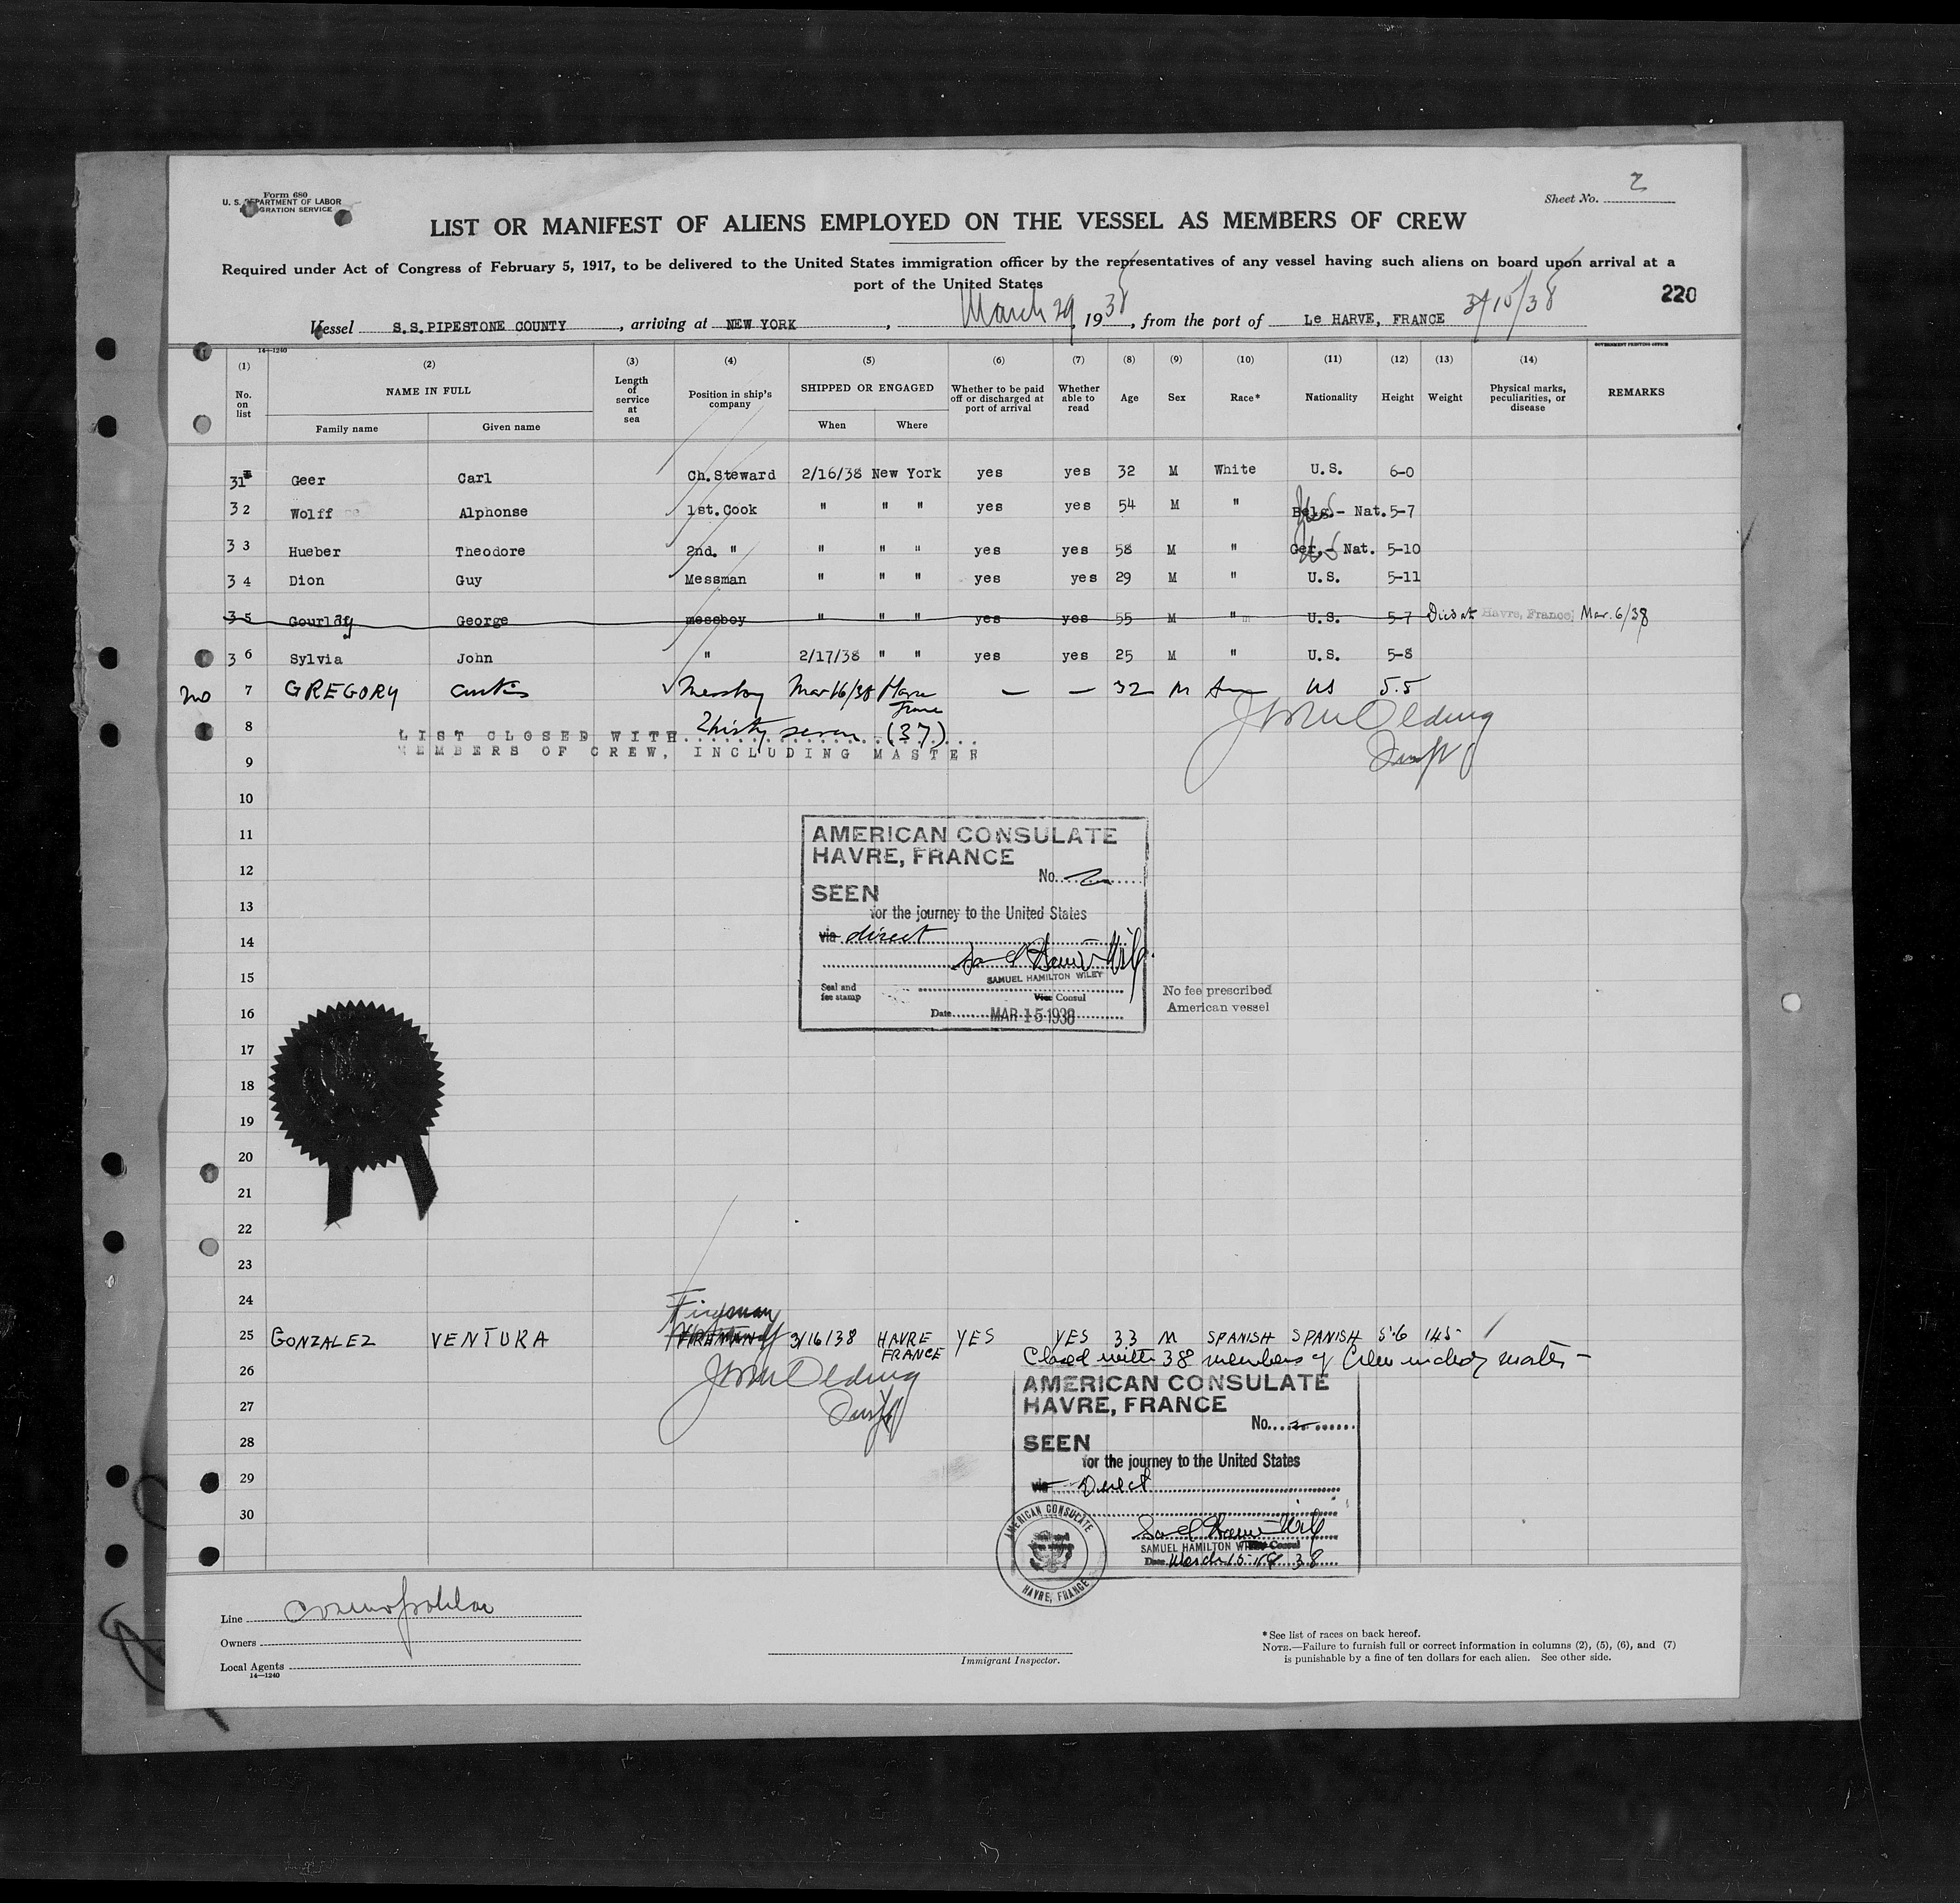 Form 680
U. S. DEPARTMENT OF LABOR
IMMIGRATION SERVICE
Sheet No. 2
LIST OR MANIFEST OF ALIENS EMPLOYED ON THE VESSEL AS MEMBERS OF CREW
Required under Act of Congress of February 5, 1917, to be delivered to the United States immigration officer by the representatives of any vessel having such aliens on board upon arrival at a
port of the United States
220
Vessel S.S.PIPESTONE COUNTY, arriving at NEW YORK, March 29, 1938, from the port of Le HARVE, FRANCE 3/15/38
14—1240
GOVERNMENT PRINTING OFFICE
(1) (2) (3) (4) (5) (6) (7) (8) (9) (10) (11) (12) (13) (14)
No. on list NAME IN FULL Length of service at sea Position in ship's company SHIPPED OR ENGAGED Whether to be paid off or discharged at port of arrival Whether able to read Age Sex Race* Nationality Height Weight Physical marks, peculiarities, or disease REMARKS
Family name Given name When Where
31 Geer Carl Ch. Steward 2/16/38 New York yes yes 32 M White U.S. 6-0
32 Wolff Alphonse 1st. Cook " " " yes yes 54 M " Belg.- Nat. 5-7
33 Hueber Theodore 2nd. " " " " yes yes 58 M " Ger.- Nat. 5-10
34 Dion Guy Messman " " " yes yes 29 M " U.S. 5-11
35 Gourlay George messboy " " " yes yes 55 M " U.S. 5-7 Died at Havre, France, Mar. 6/38
36 Sylvia John " 2/17/38 " " yes yes 25 M " U.S. 5-8
no 7 GREGORY Curtis Messboy Mar 16/38 Havre France — — 32 M US 5.5
8 LIST CLOSED WITH Thirty seven (37)
MEMBERS OF CREW, INCLUDING MASTER
9
10
11
AMERICAN CONSULATE
HAVRE, FRANCE
12
No.
SEEN
13
for the journey to the United States
14
via direct
15
SAMUEL HAMILTON WILEY
Seal and fee stamp
Vice Consul
No fee prescribed
American vessel
16
Date MAR 15 1938
17
18
19
20
21
22
23
24
Fireman
25 GONZALEZ VENTURA FIREMAN 3/16/38 HAVRE FRANCE YES YES 33 M SPANISH SPANISH 5'6 145
Closed with 38 members of Crew
26
AMERICAN CONSULATE
27
HAVRE, FRANCE
No.
28
SEEN
29
for the journey to the United States
via Direct
30
SAMUEL HAMILTON W Consul
Date March 15 38
AMERICAN CONSULATE
HAVRE, FRANCE
Line Cosmopolitan
Owners
Local Agents
14—1240
Immigrant Inspector.
*See list of races on back hereof.
NOTE.—Failure to furnish full or correct information in columns (2), (5), (6), and (7)
is punishable by a fine of ten dollars for each alien. See other side.